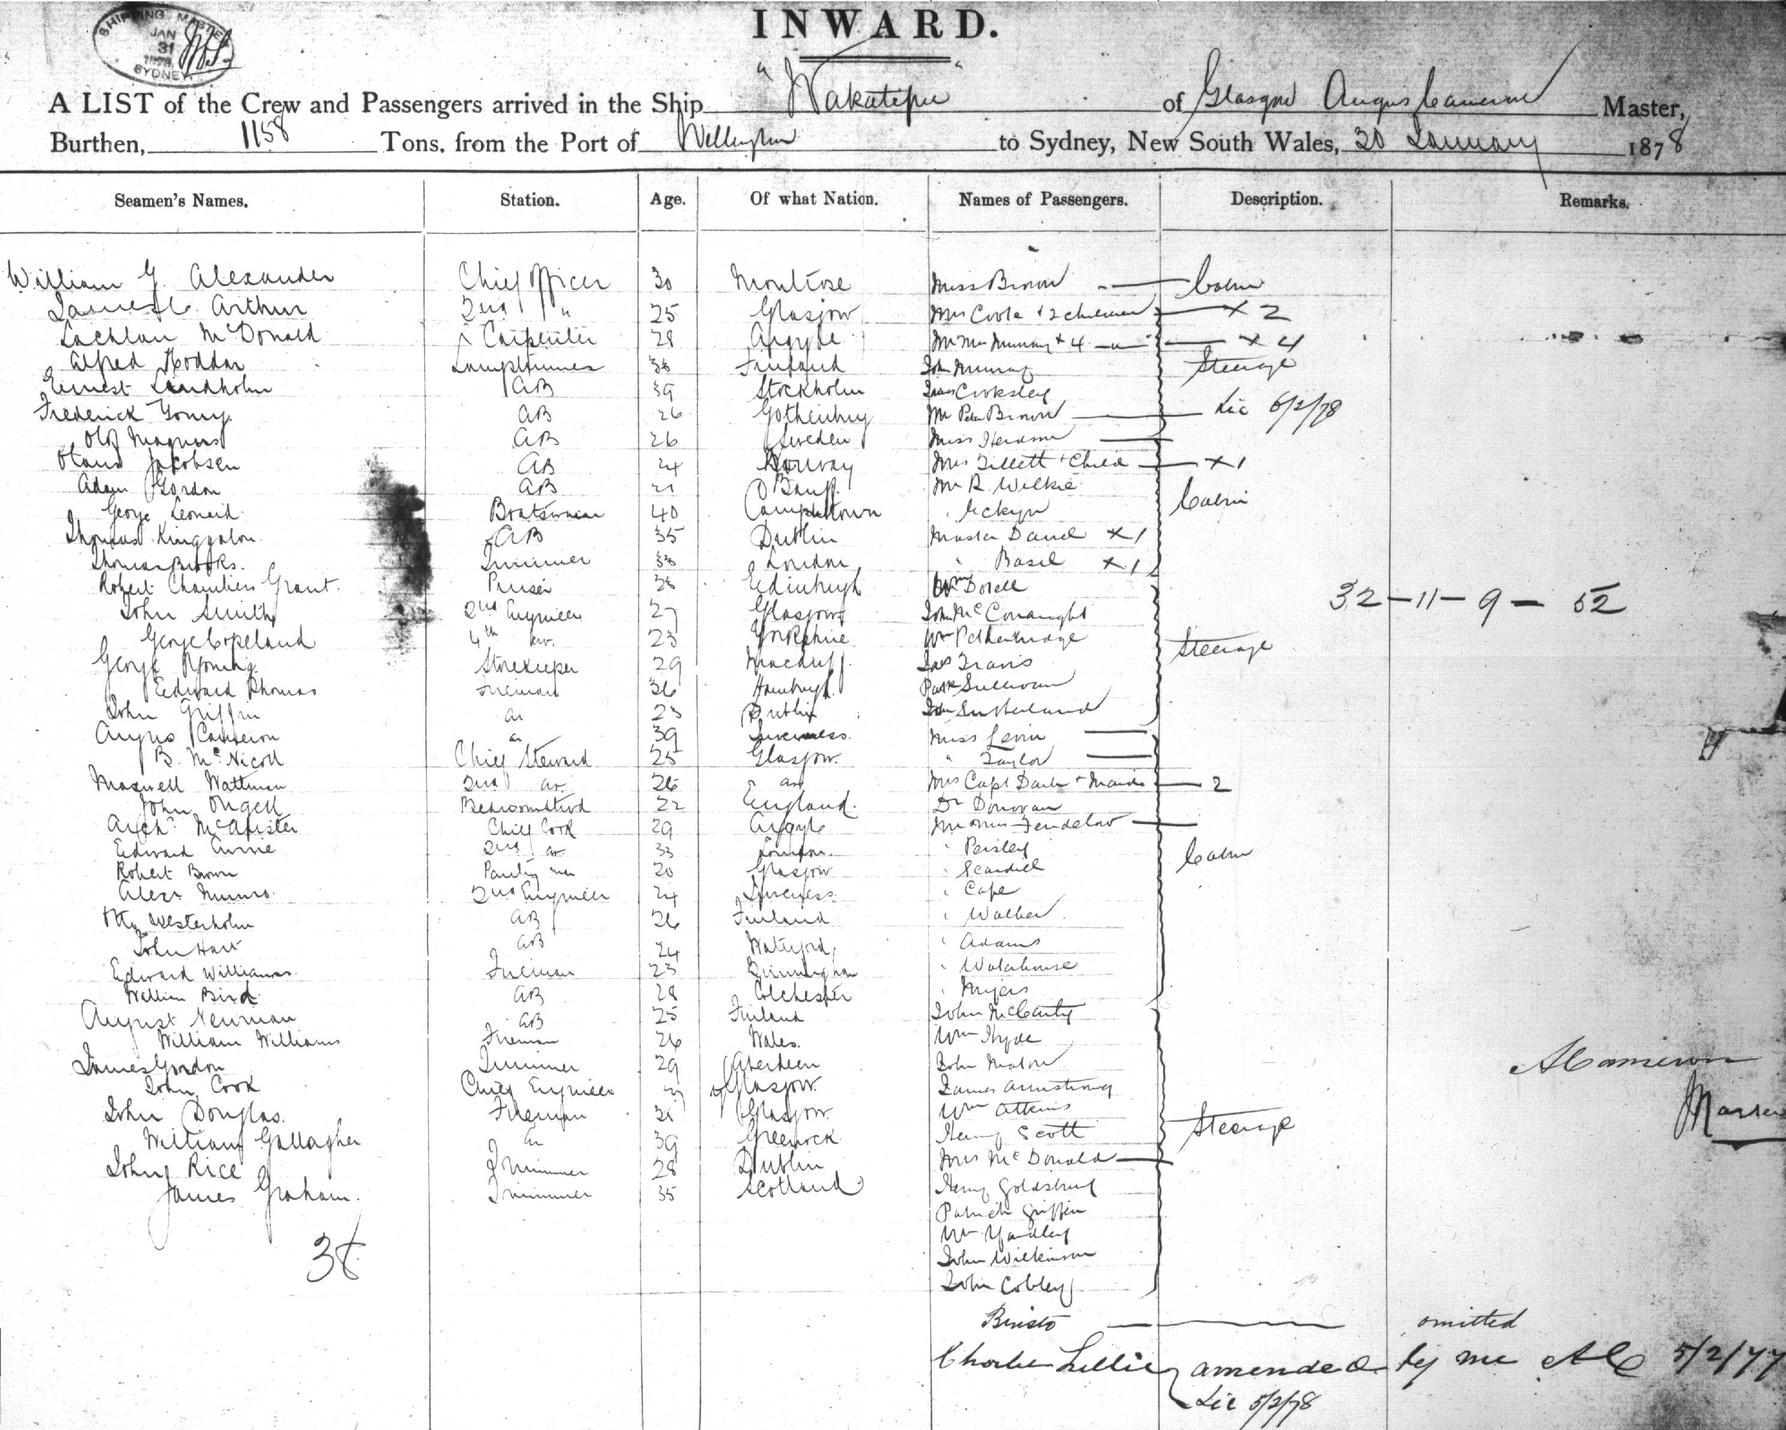 SHIPPING MASTER
JAN
31
1878
SYDNEY
INWARD.
A LIST of the Crew and Passengers arrived in the Ship "Wakatipu" of Glasgow Angus Cameron Master,
Burthen, 1158 Tons, from the Port of Wellington to Sydney, New South Wales, 30 January 1878
Seamen's Names. Station. Age. Of what Nation. Names of Passengers. Description. Remarks.
William G. Alexander Chief Officer 30 Montrose Miss Brown Cabin
James C. Arthur 2nd " 25 Glasgow Mrs Coole + 2 children × 2
Lachlan McDonald Carpenter 28 Argyle Mr Mrs Murray + 4 × 4
Alfred Hoddar Lamptrimmer 38 John Murray Steerage
Ernest Lindholm AB 39 Stockholm James Cooksley
Frederick AB 26 Gothenburg Mr Peter Brown Lic 5/2/78
Olof Magnus AB 26 Sweden Miss
Jacobsen AB 24 Norway Mrs Tillett + Child × 1
Adam Gordon AB 21 Banff Mr R. Wilkie
George Leonard Boatswain 40 Campbeltown Cabin
Thomas AB 35 Dublin Master David × 1
Thomas Brooks. Trimmer 38 London " Basil × 1
Robert Chambers Grant. Purser 38 Edinburgh Wm Dorell
John Smith 2nd Engineer 27 Glasgow John McConaught 32 – 11 – 9 – 52
George Copeland 4th do. 23 Yorkshire Wm Petherbridge
George Young Storekeeper 29 Macduff. Jas Travis Steerage
Edward Thomas Fireman 36 Hamburgh Patk Sullivan
John Griffin do 23 Dublin John Sutherland
Angus Cameron do 39 Inverness. Miss Levin
B. McNicoll Chief Steward 25 Glasgow " Taylor
Maxwell Wattman 2nd do. 26 do Mrs Capt + Maid 2
John Bedroomstwd 22 England. Dr Donovan
Archd McAlister Chief Cook 29 Argyle Mr Mrs Fendelow
Edward Currie 2nd do 33 London. " Paisley Cabin
Robert Brown Pantry man 20 Glasgow
Alexr Munro. 2nd Engineer 24 Inverness. " Cape
Otto Westerholm AB 26 Finland " Walker
John Hart AB 24 Waterford, " Adams
Edward Williams. Fireman 23 Birmingham " Waterhouse
William Bird AB 28 Colchester " Myers
August Newman AB 25 Finland John McCarty
William Williams Fireman 26 Wales. Wm Hyde
James Gordon Trimmer 29 Aberdeen John
John Cook Chief Engineer Glasgow. James Armstrong
John Douglas. Fireman Glasgow. Wm Atkins
William Gallagher do 39 Greenock Henry Scott Steerage
John Rice Trimmer 28 Dublin Mrs McDonald
James Graham. Trimmer 35 Scotland Henry Goldsbury
Patrick Griffin
Wm Yardley
John Wilkinson
John Cobley
38
ACameron
Master
omitted
Charles Lillie amended by me AC 5/2/77
Lic 5/2/78